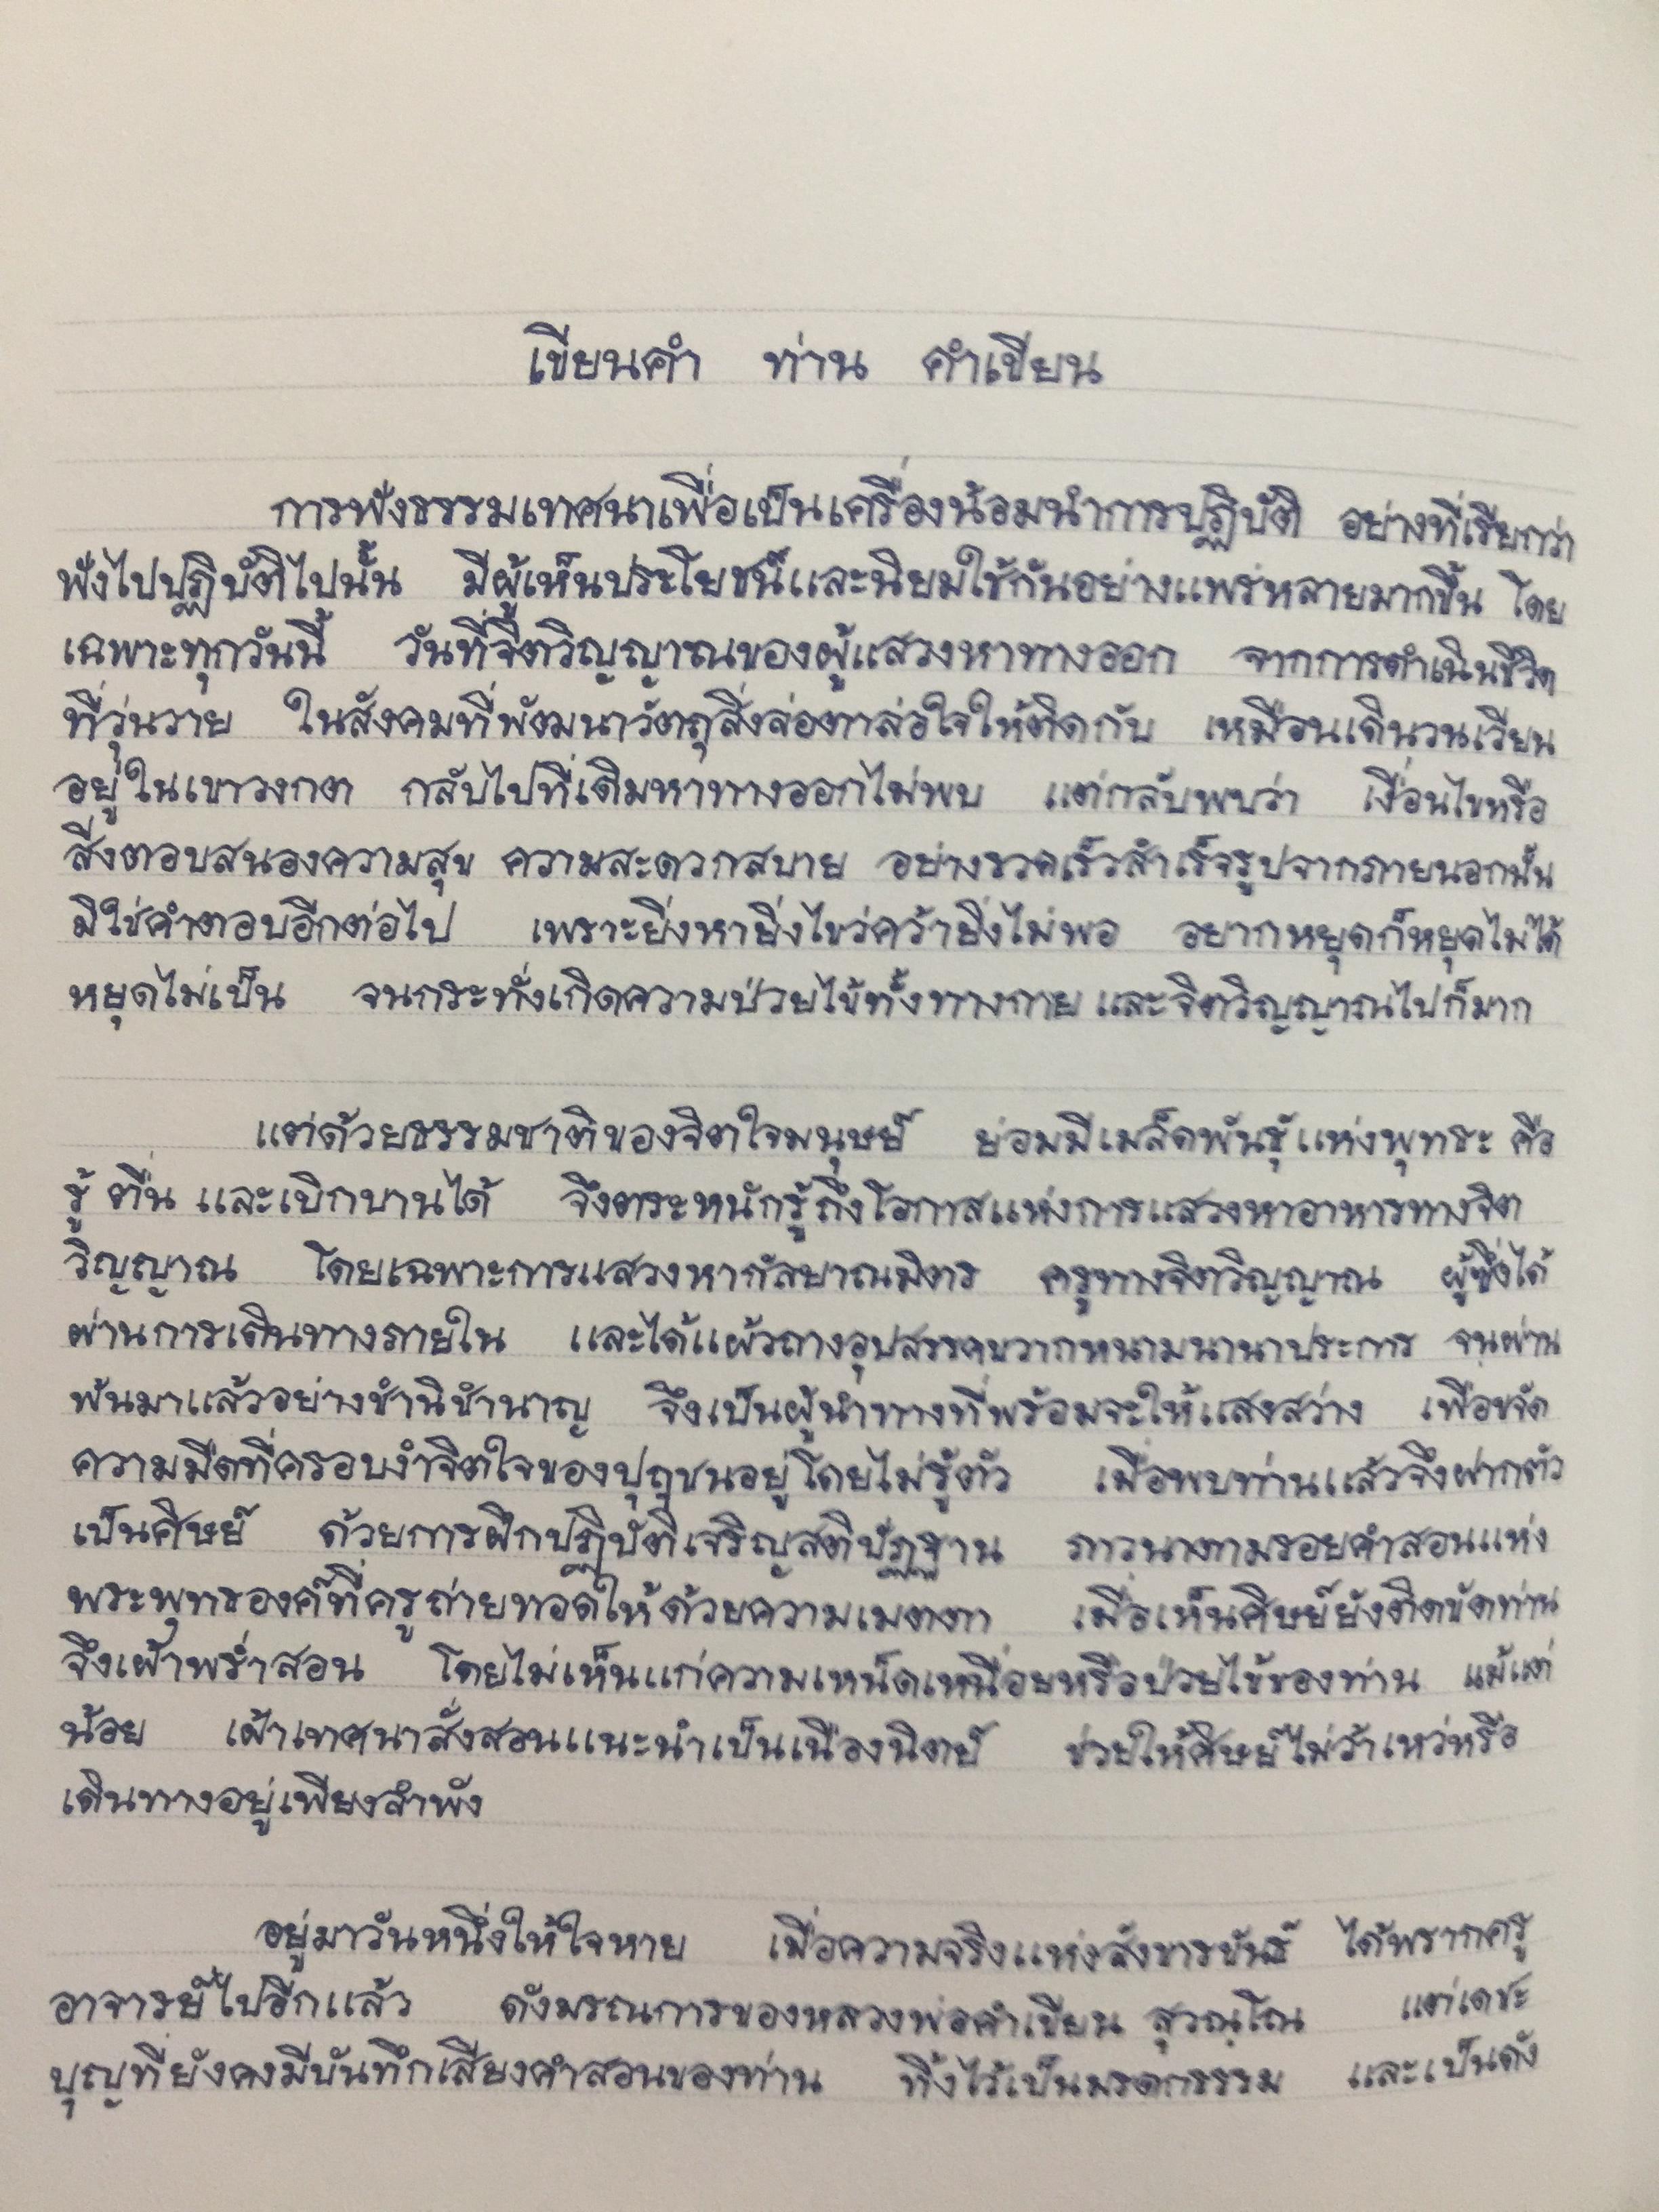 เขียนคำ ท่าน คำเขียน
การฟังธรรมเทศนาเพื่อเป็นเครื่องน้อมนำการปฏิบัติ อย่างที่เรียกว่า
ฟังไปปฏิบัติไปนั้น มีผู้เห็นประโยชน์และนิยมใช้กันอย่างแพร่หลายมากขึ้น โดย
เฉพาะทุกวันนี้ วันที่จิตวิญญาณของผู้แสวงหาทางออก จากการดำเนินชีวิต
ที่วุ่นวาย ในสังคมที่พัฒนาวัตถุสิ่งล่อตาล่อใจให้ติดกับ เหมือนเดินวนเวียน
อยู่ในเขาวงกต กลับไปที่เดิมหาทางออกไม่พบ แต่กลับพบว่า เงื่อนไขหรือ
สิ่งตอบสนองความสุข ความสะดวกสบาย อย่างรวดเร็วสำเร็จรูปจากภายนอกนั้น
มิใช่คำตอบอีกต่อไป เพราะยิ่งหายิ่งไขว่คว้ายิ่งไม่พอ อยากหยุดก็หยุดไม่ได้
หยุดไม่เป็น จนกระทั่งเกิดความป่วยไข้ทั้งทางกาย และจิตวิญญาณไปก็มาก
แต่ด้วยธรรมชาติของจิตใจมนุษย์ ย่อมมีเมล็ดพันธุ์แห่งพุทธะ คือ
รู้ ตื่น และเบิกบานได้ จึงตระหนักรู้ถึงโอกาสแห่งการแสวงหาอาหารทางจิต
วิญญาณ โดยเฉพาะการแสวงหากัลยาณมิตร ครูทางจิตวิญญาณ ผู้ซึ่งได้
ผ่านการเดินทางภายใน และได้แผ้วถางอุปสรรคขวากหนามนานาประการ จนผ่าน
พ้นมาแล้วอย่างชำนิชำนาญ จึงเป็นผู้นำทางที่พร้อมจะให้แสงสว่าง เพื่อขจัด
ความมืดที่ครอบงำจิตใจของปุถุชนอยู่โดยไม่รู้ตัว เมื่อพบท่านแล้วจึงฝากตัว
เป็นศิษย์ ด้วยการฝึกปฏิบัติเจริญสติปัฏฐาน ภาวนาตามรอยคำสอนแห่ง
พระพุทธองค์ที่ครูถ่ายทอดให้ด้วยความเมตตา เมื่อเห็นศิษย์ยังติดขัดท่าน
จึงเฝ้าพร่ำสอน โดยไม่เห็นแก่ความเหน็ดเหนื่อยหรือป่วยไข้ของท่าน แม้แต่
น้อย เฝ้าเทศนาสั่งสอนแนะนำเป็นเนืองนิตย์ ช่วยให้ศิษย์ไม่ว้าเหว่หรือ
เดินทางอยู่เพียงลำพัง
อยู่มาวันหนึ่งให้ใจหาย เมื่อความจริงแห่งสังขารขันธ์ ได้พรากครู
อาจารย์ไปอีกแล้ว ดังมรณการของหลวงพ่อคำเขียน สุวณฺโณ แต่เดชะ
บุญที่ยังคงมีบันทึกเสียงคำสอนของท่าน ทิ้งไว้เป็นมรดกธรรม และเป็นดัง